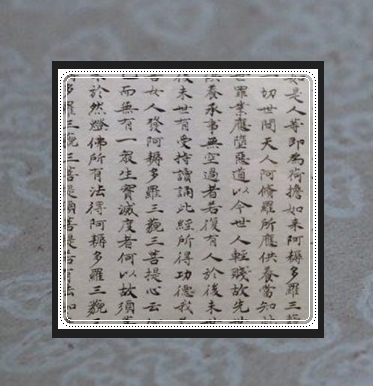 如是人等即為荷擔如來阿耨多羅三
切世間天人阿脩羅所應供養當知
罪業應墮惡道以今世人輕賤故先世
養承事無空過者若復有人於後末
後末世有受持讀誦此經所得功德我
女人發阿耨多羅三藐三菩提心云
而無有一眾生實滅度者何以故須
於然燈佛所有法得阿耨多羅三藐
多羅三藐三菩提須菩提若有法如